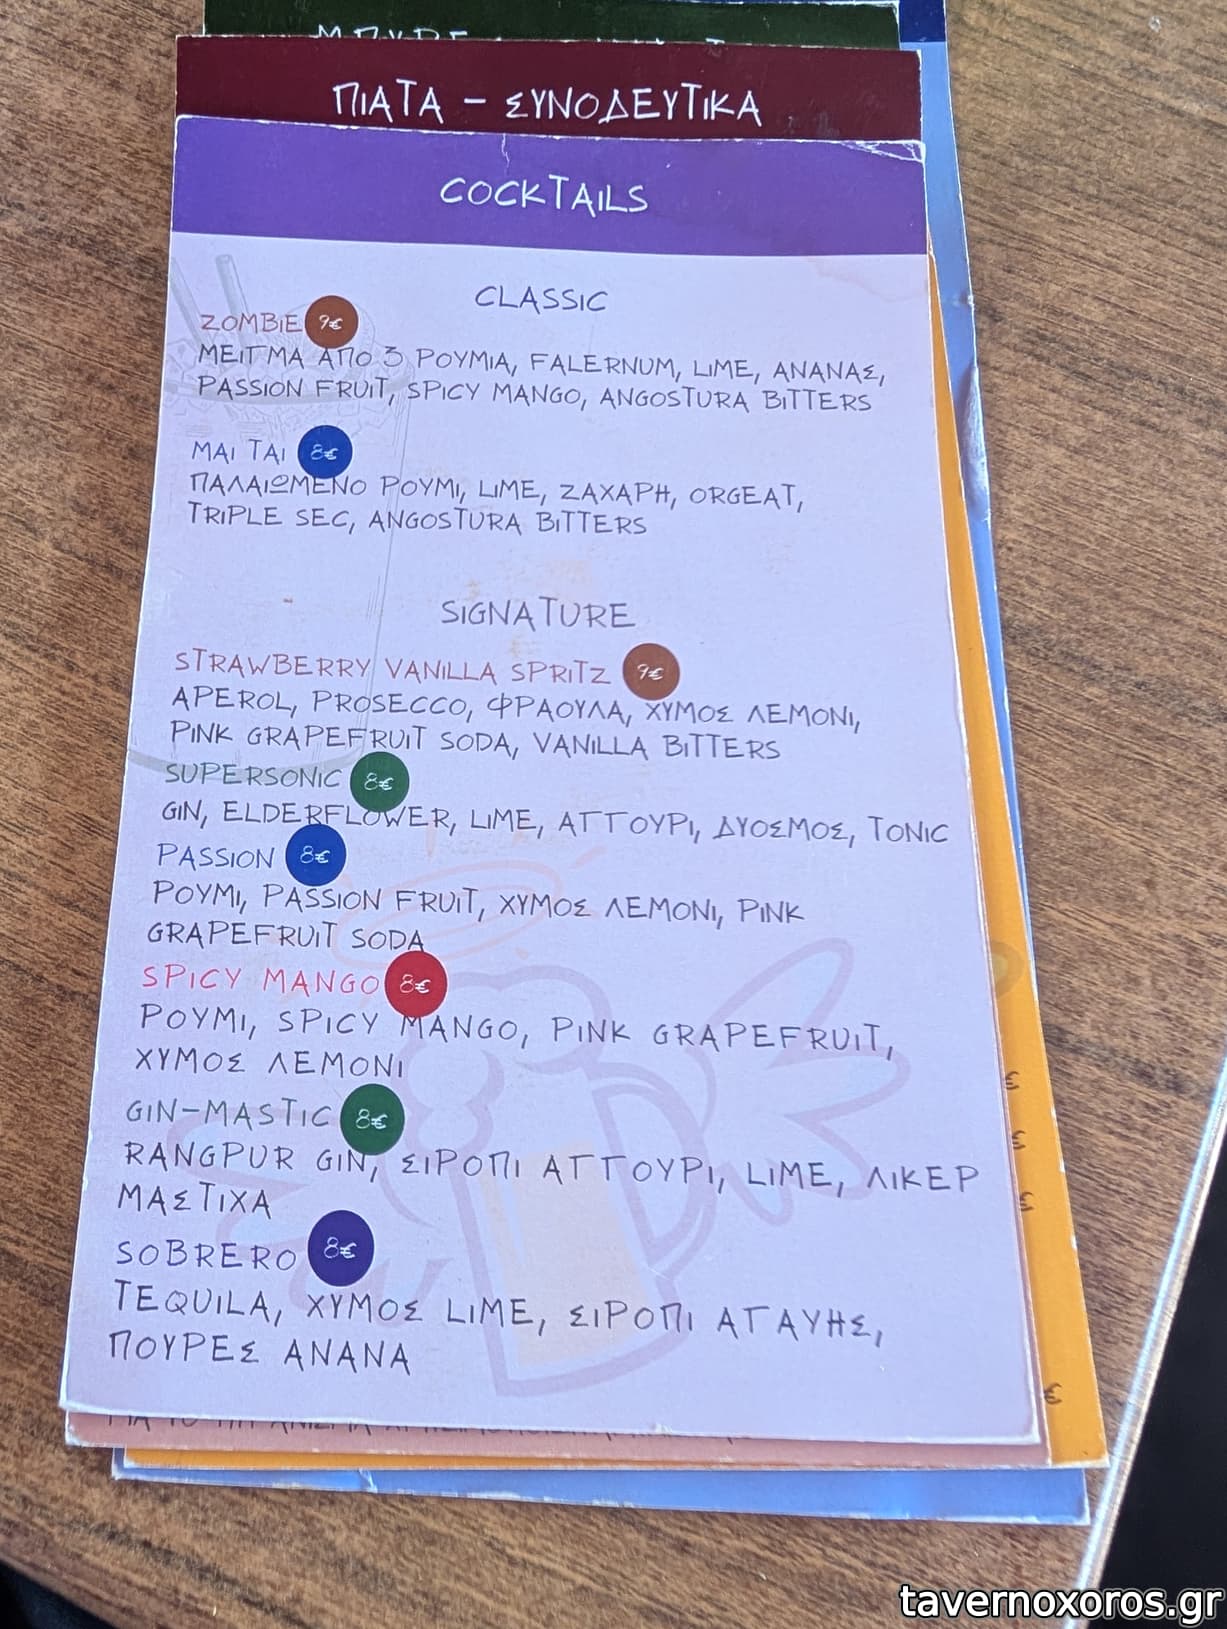 ΠΙΑΤΑ - ΣΥΝΟΔΕΥΤΙΚΑ
COCKTAILS
CLASSIC
ZOMBIE 9€
ΜΕΙΓΜΑ ΑΠΟ 3 ΡΟΥΜΙΑ, FALERNUM, LIME, ΑΝΑΝΑΣ,
PASSION FRUIT, SPICY MANGO, ANGOSTURA BITTERS
MAI TAI 8€
ΠΑΛΑΙΩΜΕΝΟ ΡΟΥΜΙ, LIME, ΖΑΧΑΡΗ, ORGEAT,
TRIPLE SEC, ANGOSTURA BITTERS
SIGNATURE
STRAWBERRY VANILLA SPRITZ 9€
APEROL, PROSECCO, ΦΡΑΟΥΛΑ, ΧΥΜΟΣ ΛΕΜΟΝΙ,
PINK GRAPEFRUIT SODA, VANILLA BITTERS
SUPERSONIC 8€
GIN, ELDERFLOWER, LIME, ΑΓΓΟΥΡΙ, ΔΥΟΣΜΟΣ, TONIC
PASSION 8€
ΡΟΥΜΙ, PASSION FRUIT, ΧΥΜΟΣ ΛΕΜΟΝΙ, PINK
GRAPEFRUIT SODA
SPICY MANGO 8€
ΡΟΥΜΙ, SPICY MANGO, PINK GRAPEFRUIT,
ΧΥΜΟΣ ΛΕΜΟΝΙ
GIN-MASTIC 8€
RANGPUR GIN, ΣΙΡΟΠΙ ΑΓΓΟΥΡΙ, LIME, ΛΙΚΕΡ
ΜΑΣΤΙΧΑ
SOBRERO 8€
TEQUILA, ΧΥΜΟΣ LIME, ΣΙΡΟΠΙ ΑΓΑΥΗΣ,
ΠΟΥΡΕΣ ΑΝΑΝΑ
€
€
€
€
tavernoxoros.gr